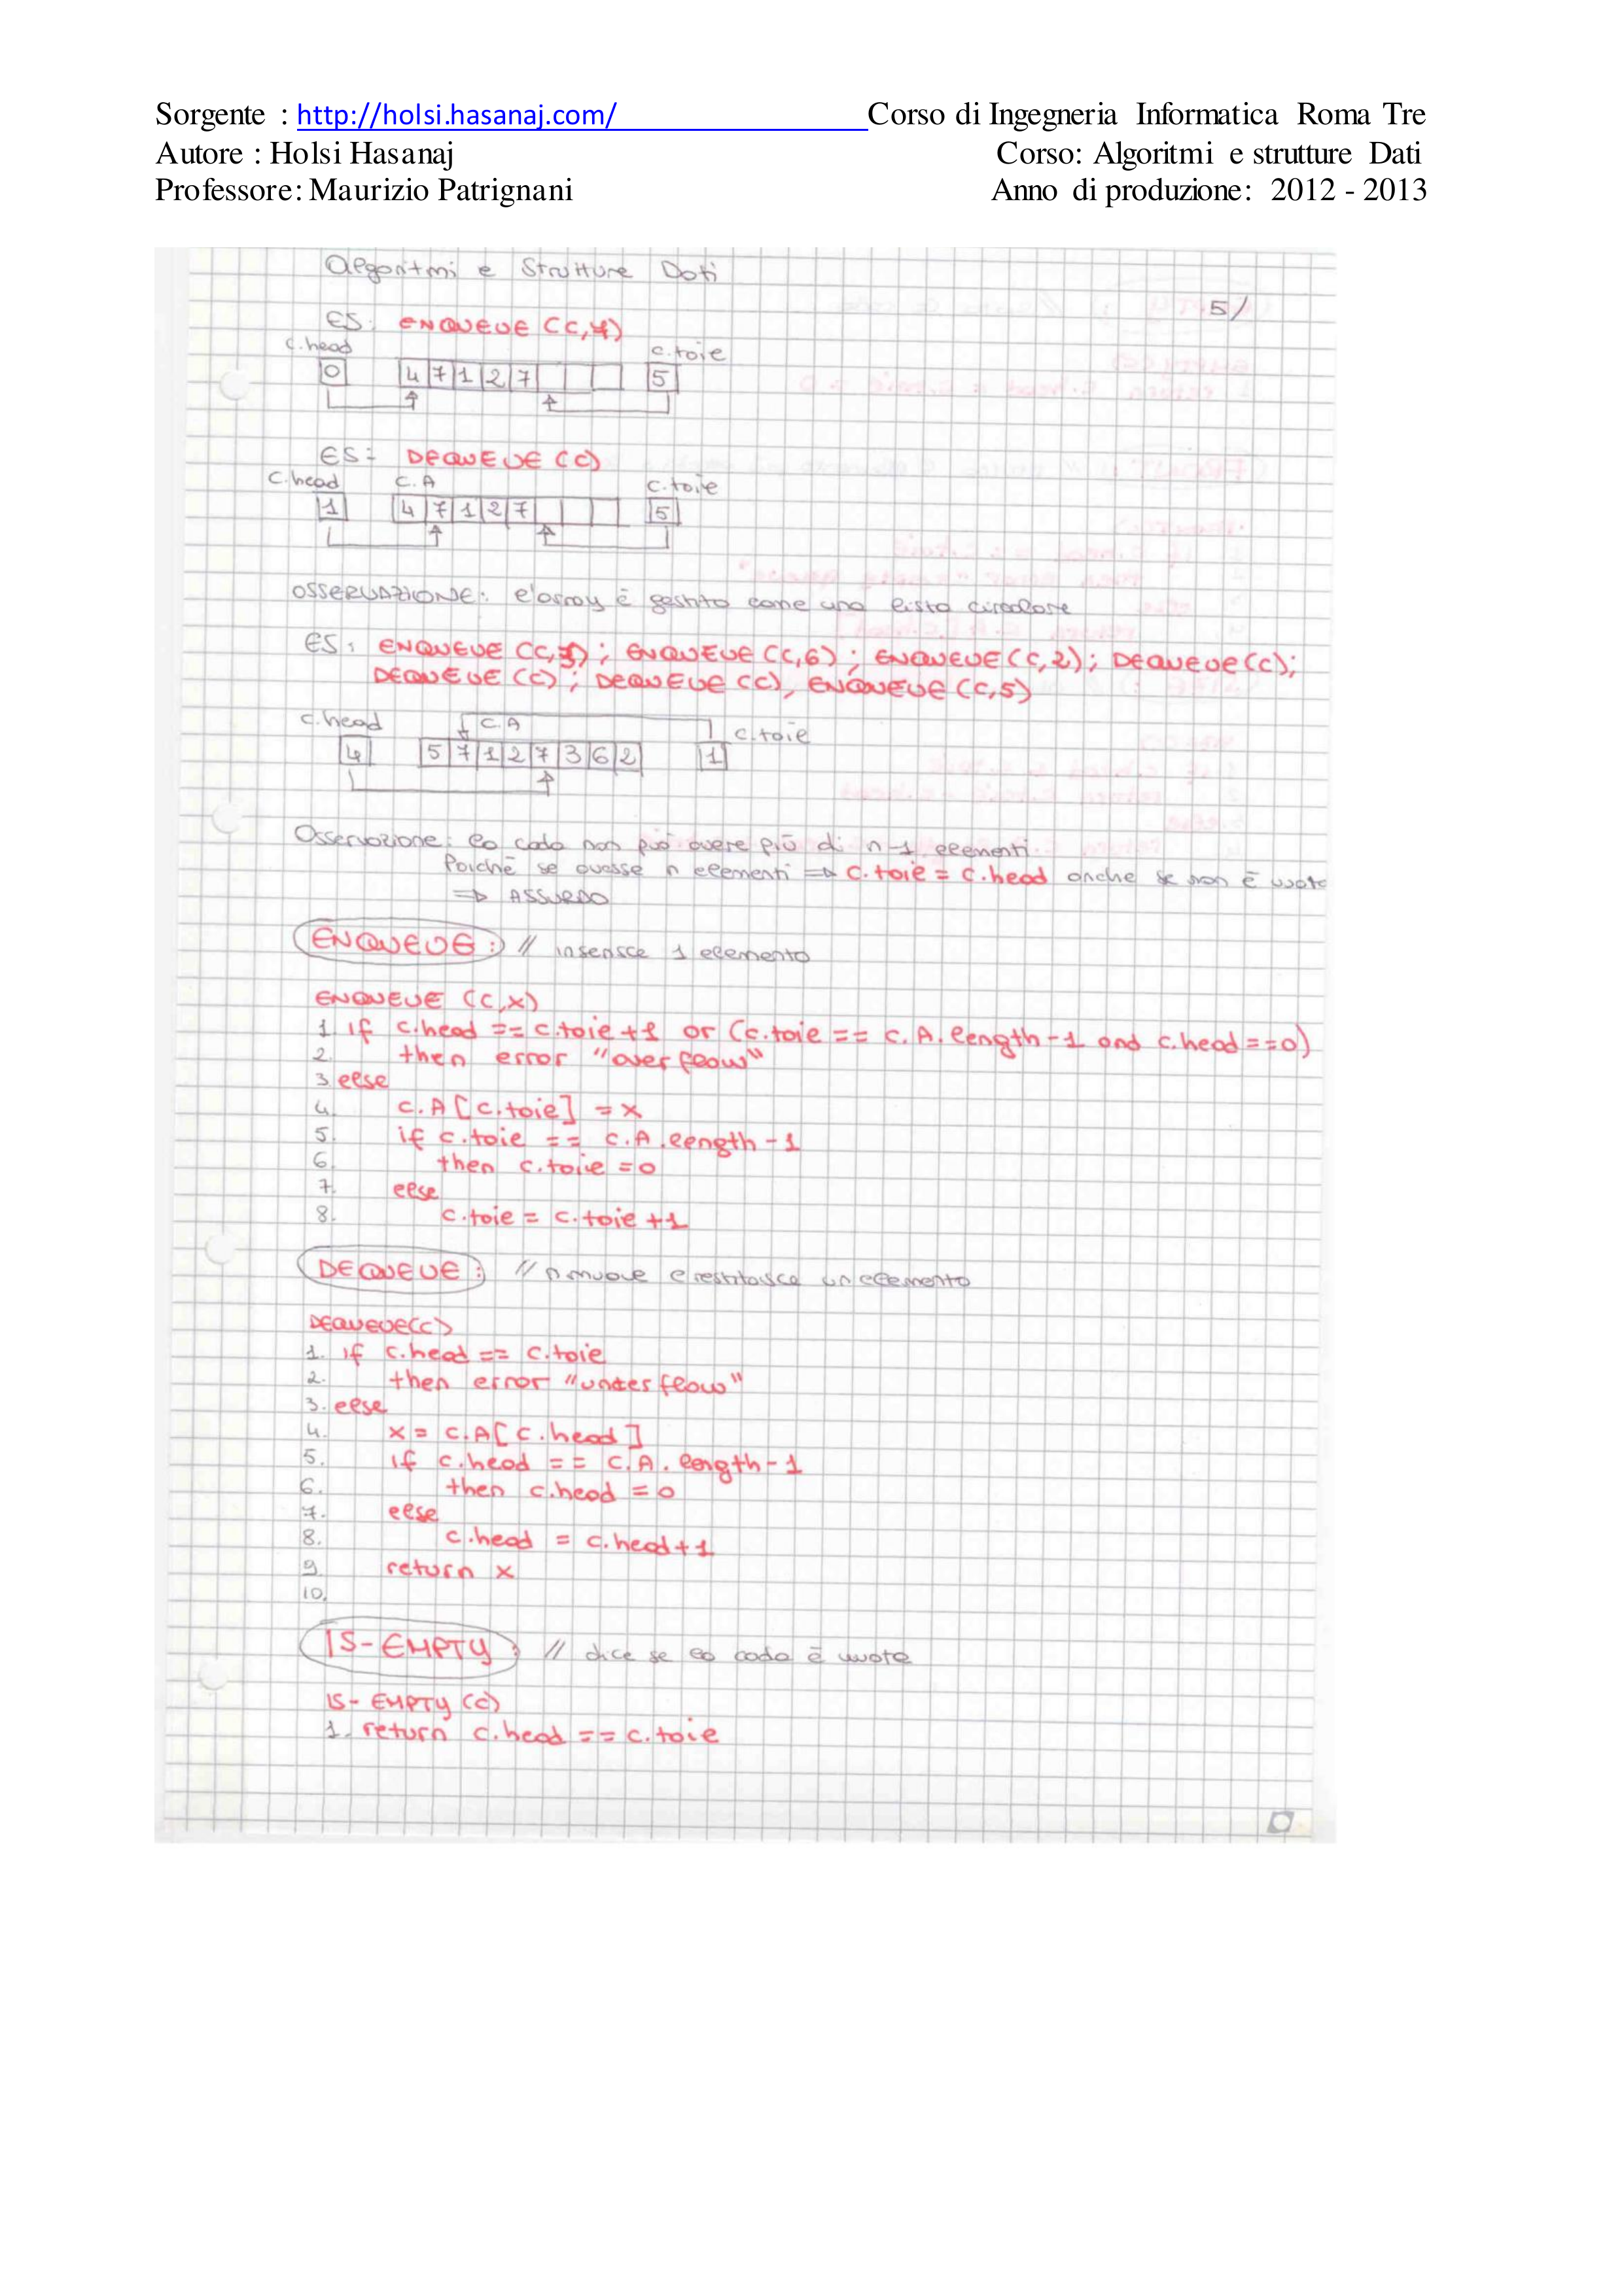 Sorgente : http://holsi.hasanaj.com/ Corso di Ingegneria Informatica Roma Tre
Autore : Holsi Hasanaj Corso: Algoritmi e strutture Dati
Professore: Maurizio Patrignani Anno di produzione: 2012 - 2013
Algoritmi e Strutture Dati
5/
ES: ENQUEUE (C,7)
c.head c.taie
0 4 7 1 2 7 5
ES: DEQUEUE (C)
c.head C.A c.taie
1 4 7 1 2 7 5
OSSERVAZIONE: l'array è gestito come una lista circolare
ES: ENQUEUE (C,3); ENQUEUE (C,6); ENQUEUE (C,2); DEQUEUE(C);
DEQUEUE (C); DEQUEUE (C), ENQUEUE (C,5)
c.head C.A c.taie
4 5 7 1 2 7 3 6 2 1
Osservazione: la coda non può avere più di n-1 elementi
Poichè se avesse n elementi => c.taie = c.head anche se non è vuota
=> ASSURDO
ENQUEUE: // inserisce 1 elemento
ENQUEUE (C,X)
1 if c.head == c.taie+1 or (c.taie == c.A.length-1 and c.head==0)
2. then error "overflow"
3 else
4. c.A[c.taie] = x
5. if c.taie == c.A.length-1
6. then c.taie = 0
7. else
8. c.taie = c.taie +1
DEQUEUE: // rimuove e restituisce un elemento
DEQUEUE(C)
1. if c.head == c.taie
2. then error "underflow"
3. else
4. x = c.A[c.head]
5. if c.head == c.A.length-1
6. then c.head = 0
7. else
8. c.head = c.head+1
9 return x
10.
IS-EMPTY: // dice se la coda è vuota
IS-EMPTY (C)
1. return c.head == c.taie